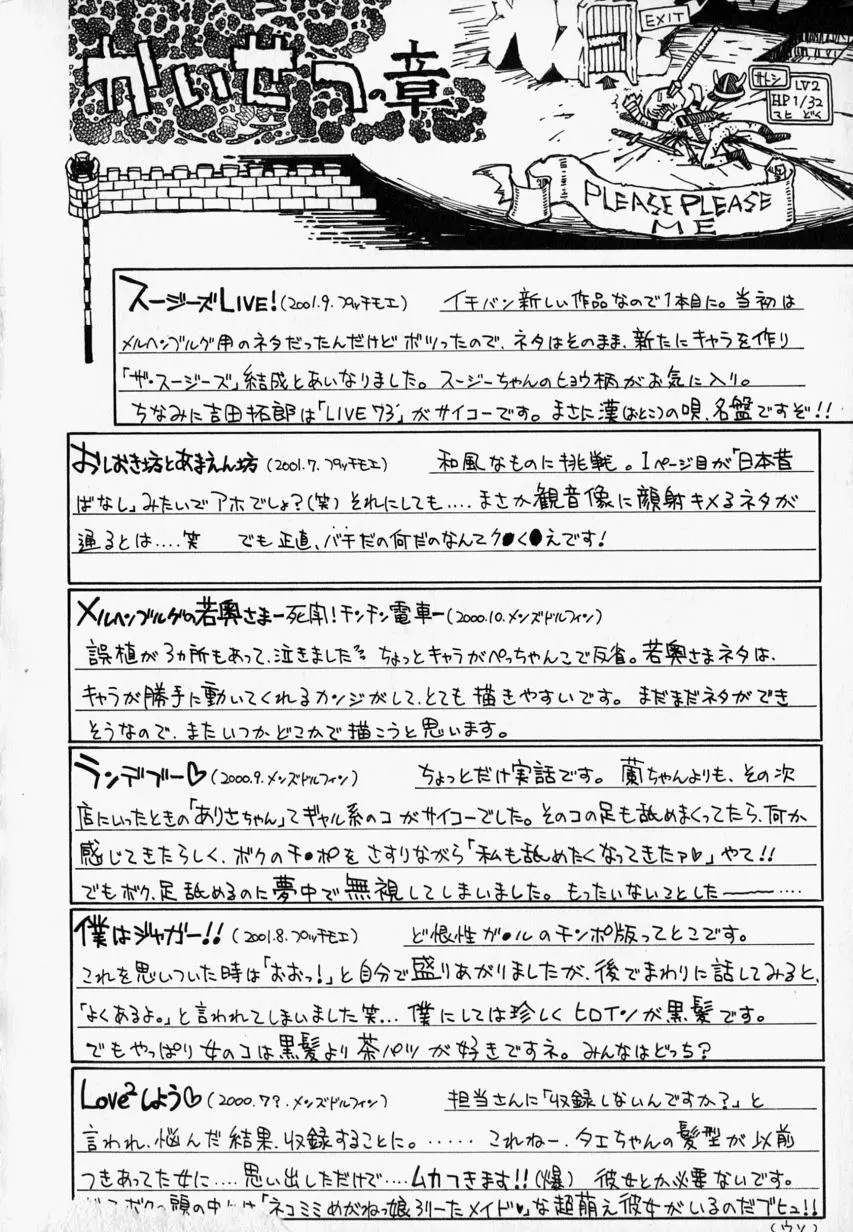 かいせつの章
EXIT
サトシ LV2
HP 1/32
マヒ どく
PLEASE PLEASE
ME
スージーズLIVE!(2001.9.プッチモエ) イチバン新しい作品なので1本目に。当初は
メルヘンブルグ用のネタだったんだけどボツったので、ネタはそのまま、新たにキャラを作り
「ザ・スージーズ」結成とあいなりました。スージーちゃんのヒョウ柄がお気に入り。
ちなみに吉田拓郎は「LIVE'73」がサイコーです。まさに漢(おとこ)の唄、名盤ですぞ!!
おしおき坊とあまえん坊(2001.7.プッチモエ) 和風なものに挑戦。1ページ目が「日本昔
ばなし」みたいでアホでしょ?(笑)それにしても....まさか観音像に顔射キメるネタが
通るとは....笑 でも正直、バチだの何だのなんてク●く●えです!
メルヘンブルグの若奥さまー死闘!チンチン電車ー(2000.10.メンズドルフィン)
誤植が3ヵ所もあって、泣きました ちょっとキャラがぺっちゃんこで反省。若奥さまネタは、
キャラが勝手に動いてくれるカンジがして、とても描きやすいです。まだまだネタができ
そうなので、またいつかどこかで描こうと思います。
ランデブー♡(2000.9.メンズドルフィン) ちょっとだけ実話です。蘭ちゃんよりも、その次
店にいったときの「ありさちゃん」てギャル系のコがサイコーでした。そのコの足も舐めまくってたら、何か
感じてきたらしく、ボクのチ・ポをさすりながら「私も舐めたくなってきたァ♥」やて!!
でもボク、足舐めるのに夢中で無視してしまいました。もったいないことした〜〜〜....
僕はジャガー!!(2001.8.プッチモエ) ど根性ガ●ルのチンポ版ってとこです。
これを思いついた時は「おおっ!」と自分で盛りあがりましたが、後でまわりに話してみると、
「よくあるよ。」と言われてしまいました笑...僕にしては珍しくヒロインが黒髪です。
でもやっぱり女のコは黒髪より茶パツが好きですネ。みんなはどっち?
Love²しよう♡(2000.7?.メンズドルフィン) 担当さんに「収録しないんですか?」と
言われ、悩んだ結果、収録することに。......これねー、タエちゃんの髪型が以前
つきあってた女に....思い出しただけで....ムカつきます!!(爆) 彼女とか必要ないです。
ボクの頭の中には「ネコミミめがねっ娘ろりーたメイド♥」な超萌え彼女がいるのだブヒュ!!
(ウソ)